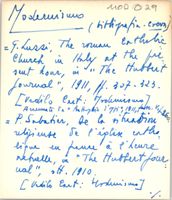 1100 D 29
Modernismo
(bibliografia - cont.)
= G. Luzzi. The roman catholic
Church in Italy at the pre
sent hour, in "The Hibbert
Journal", 1911, p. 307-323.
[Vedi lo Cart. Modernismo]
= P. Sabatier, De la situation
religieuse de l'église catho
lique en france à l'heure
actuelle, in "The Hibbert Jour
nal", 1910.
[Vedi lo Cart. Modernismo]
./.